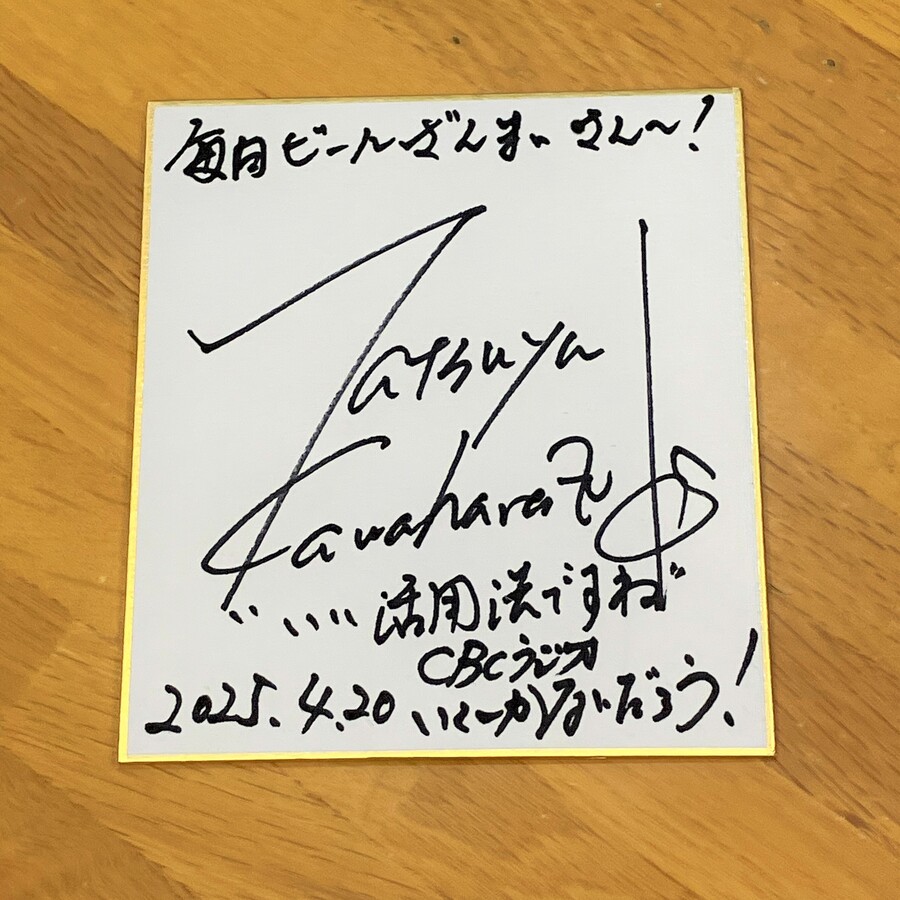 毎日ビールざんまい さん～!
Tatsuya
Kawahara
"いい" 活用法ですね
CBCラジオ
2025.4.20 いくしかないだろう!